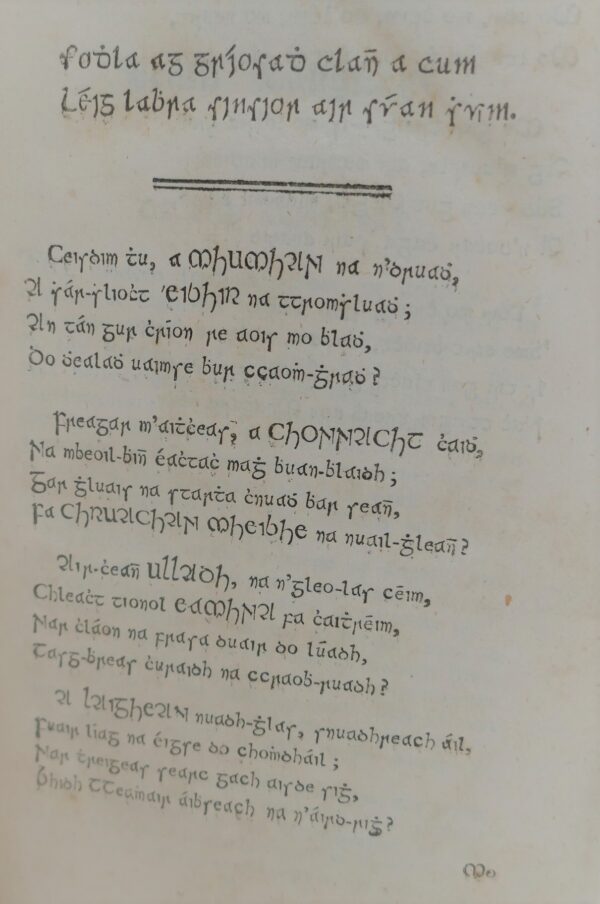 Foḋla ag gríosaḋ clañ a cum
Léig laḃra sinsior air sv́an ṡvim.
Ceisdim ṫu, a MHUMHAN na n'druaḋ,
A ṡár-ṡlioċt 'EIBHIR na ttromṡluaḋ ;
An tán gur ċríon re aois mo blaḋ,
Do ḋealaḋ uaimse ḃur ccaoṁ-ġraḋ ?
Freagar m'aiṫċeas, a CHONNACHT ċaiḋ,
Na mbeoil-ḃiñ éaċtaċ maġ ḃuan-ḃlaidh ;
Gar ġluais na starṫa ċnuaḋ ḃar seañ,
Fa CHRUACHAN MHEIBHE na nuail-ġleañ ?
Air-ċeañ ULLADH, na n'gleo-las cẽim,
Chleaċt tionol EAMHNA fa ċaiṫrẽim,
Nar ċláon na frasa duair do lṽadh,
Tasg-ḃreas ċuraidh na ccraoḃ-ruadh ?
A LAIGHEAN nuadh-ġlas, snuadhreach áil,
Fuair liag na éigse do choṁdháil ;
Nar ṫreigeas searc gach aisde siġ,
Bhidh TTeaṁair áiḃseach na n'áird-riġ ?
Mo